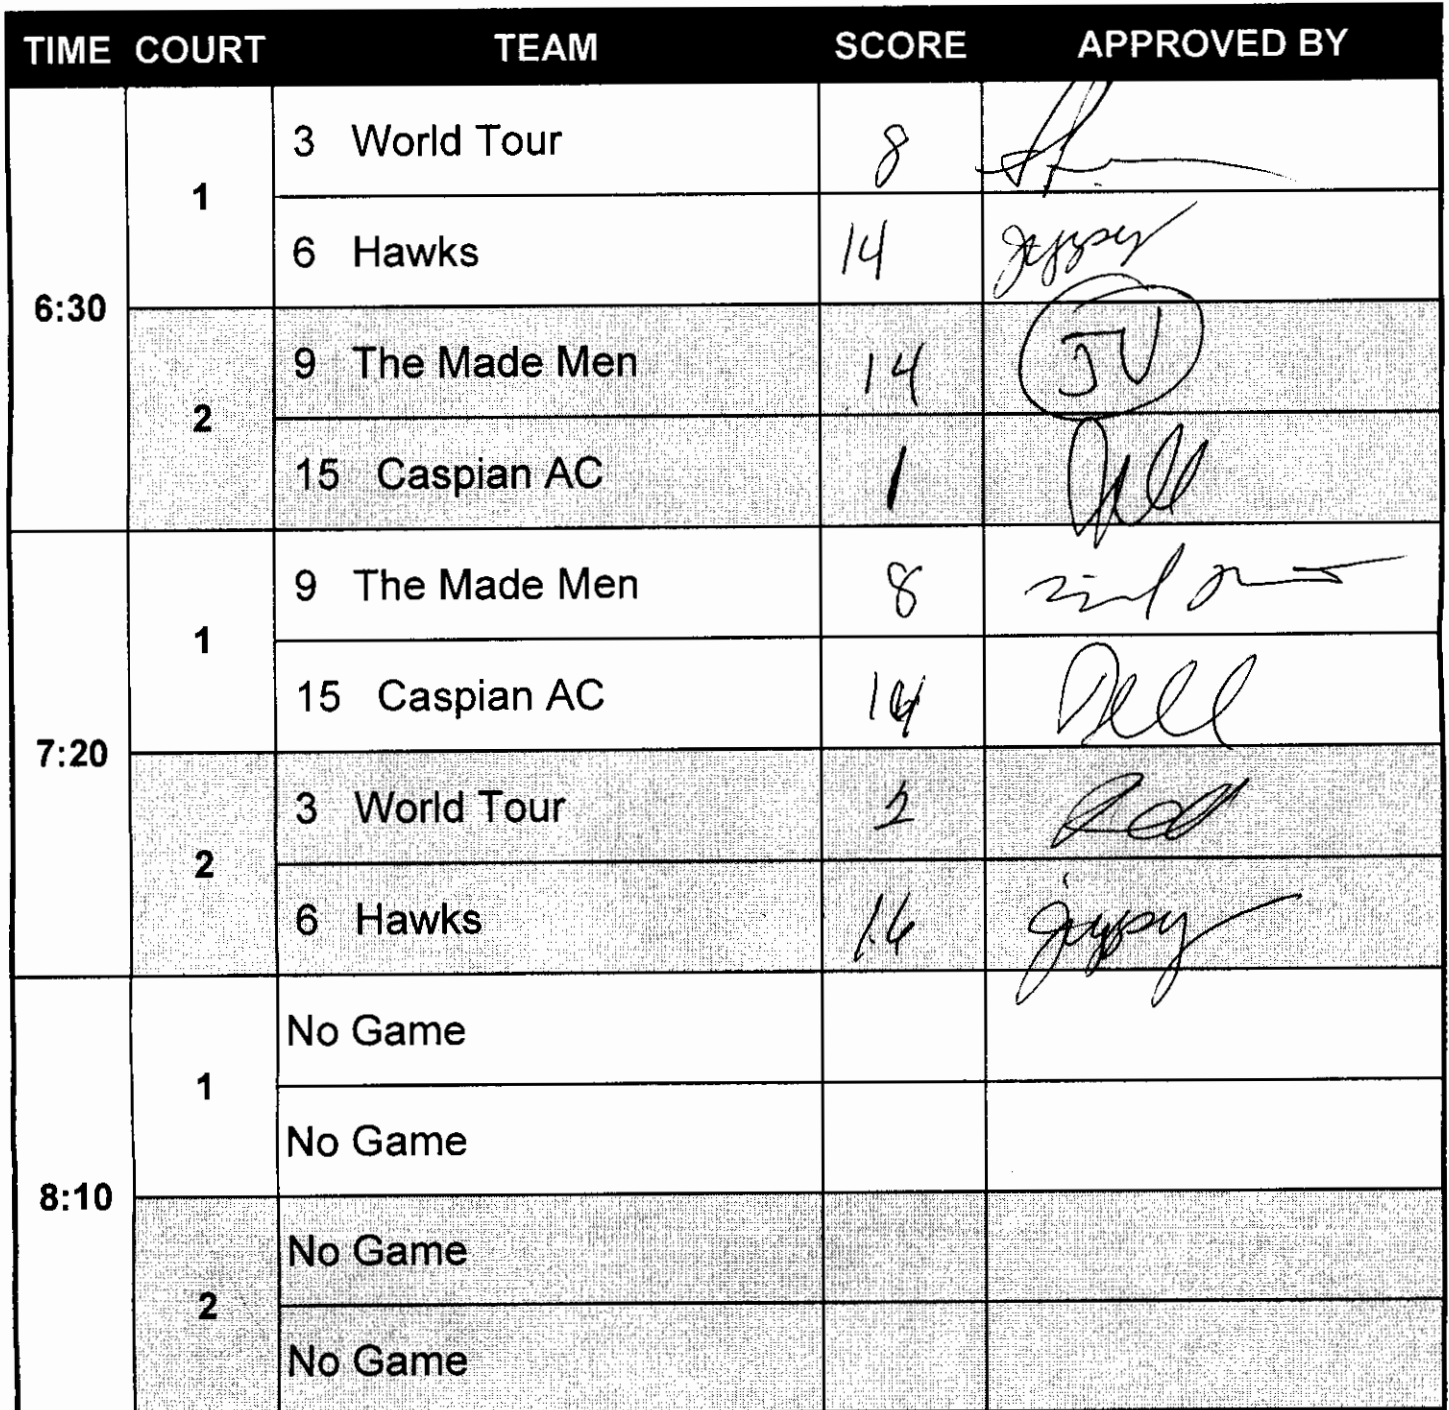 TIME COURT TEAM SCORE APPROVED BY
6:30
1
3 World Tour 8
6 Hawks 14
2
9 The Made Men 14 JV
15 Caspian AC 1
7:20
1
9 The Made Men 8
15 Caspian AC
2
3 World Tour 2
6 Hawks 16
8:10
1
No Game
No Game
2
No Game
No Game